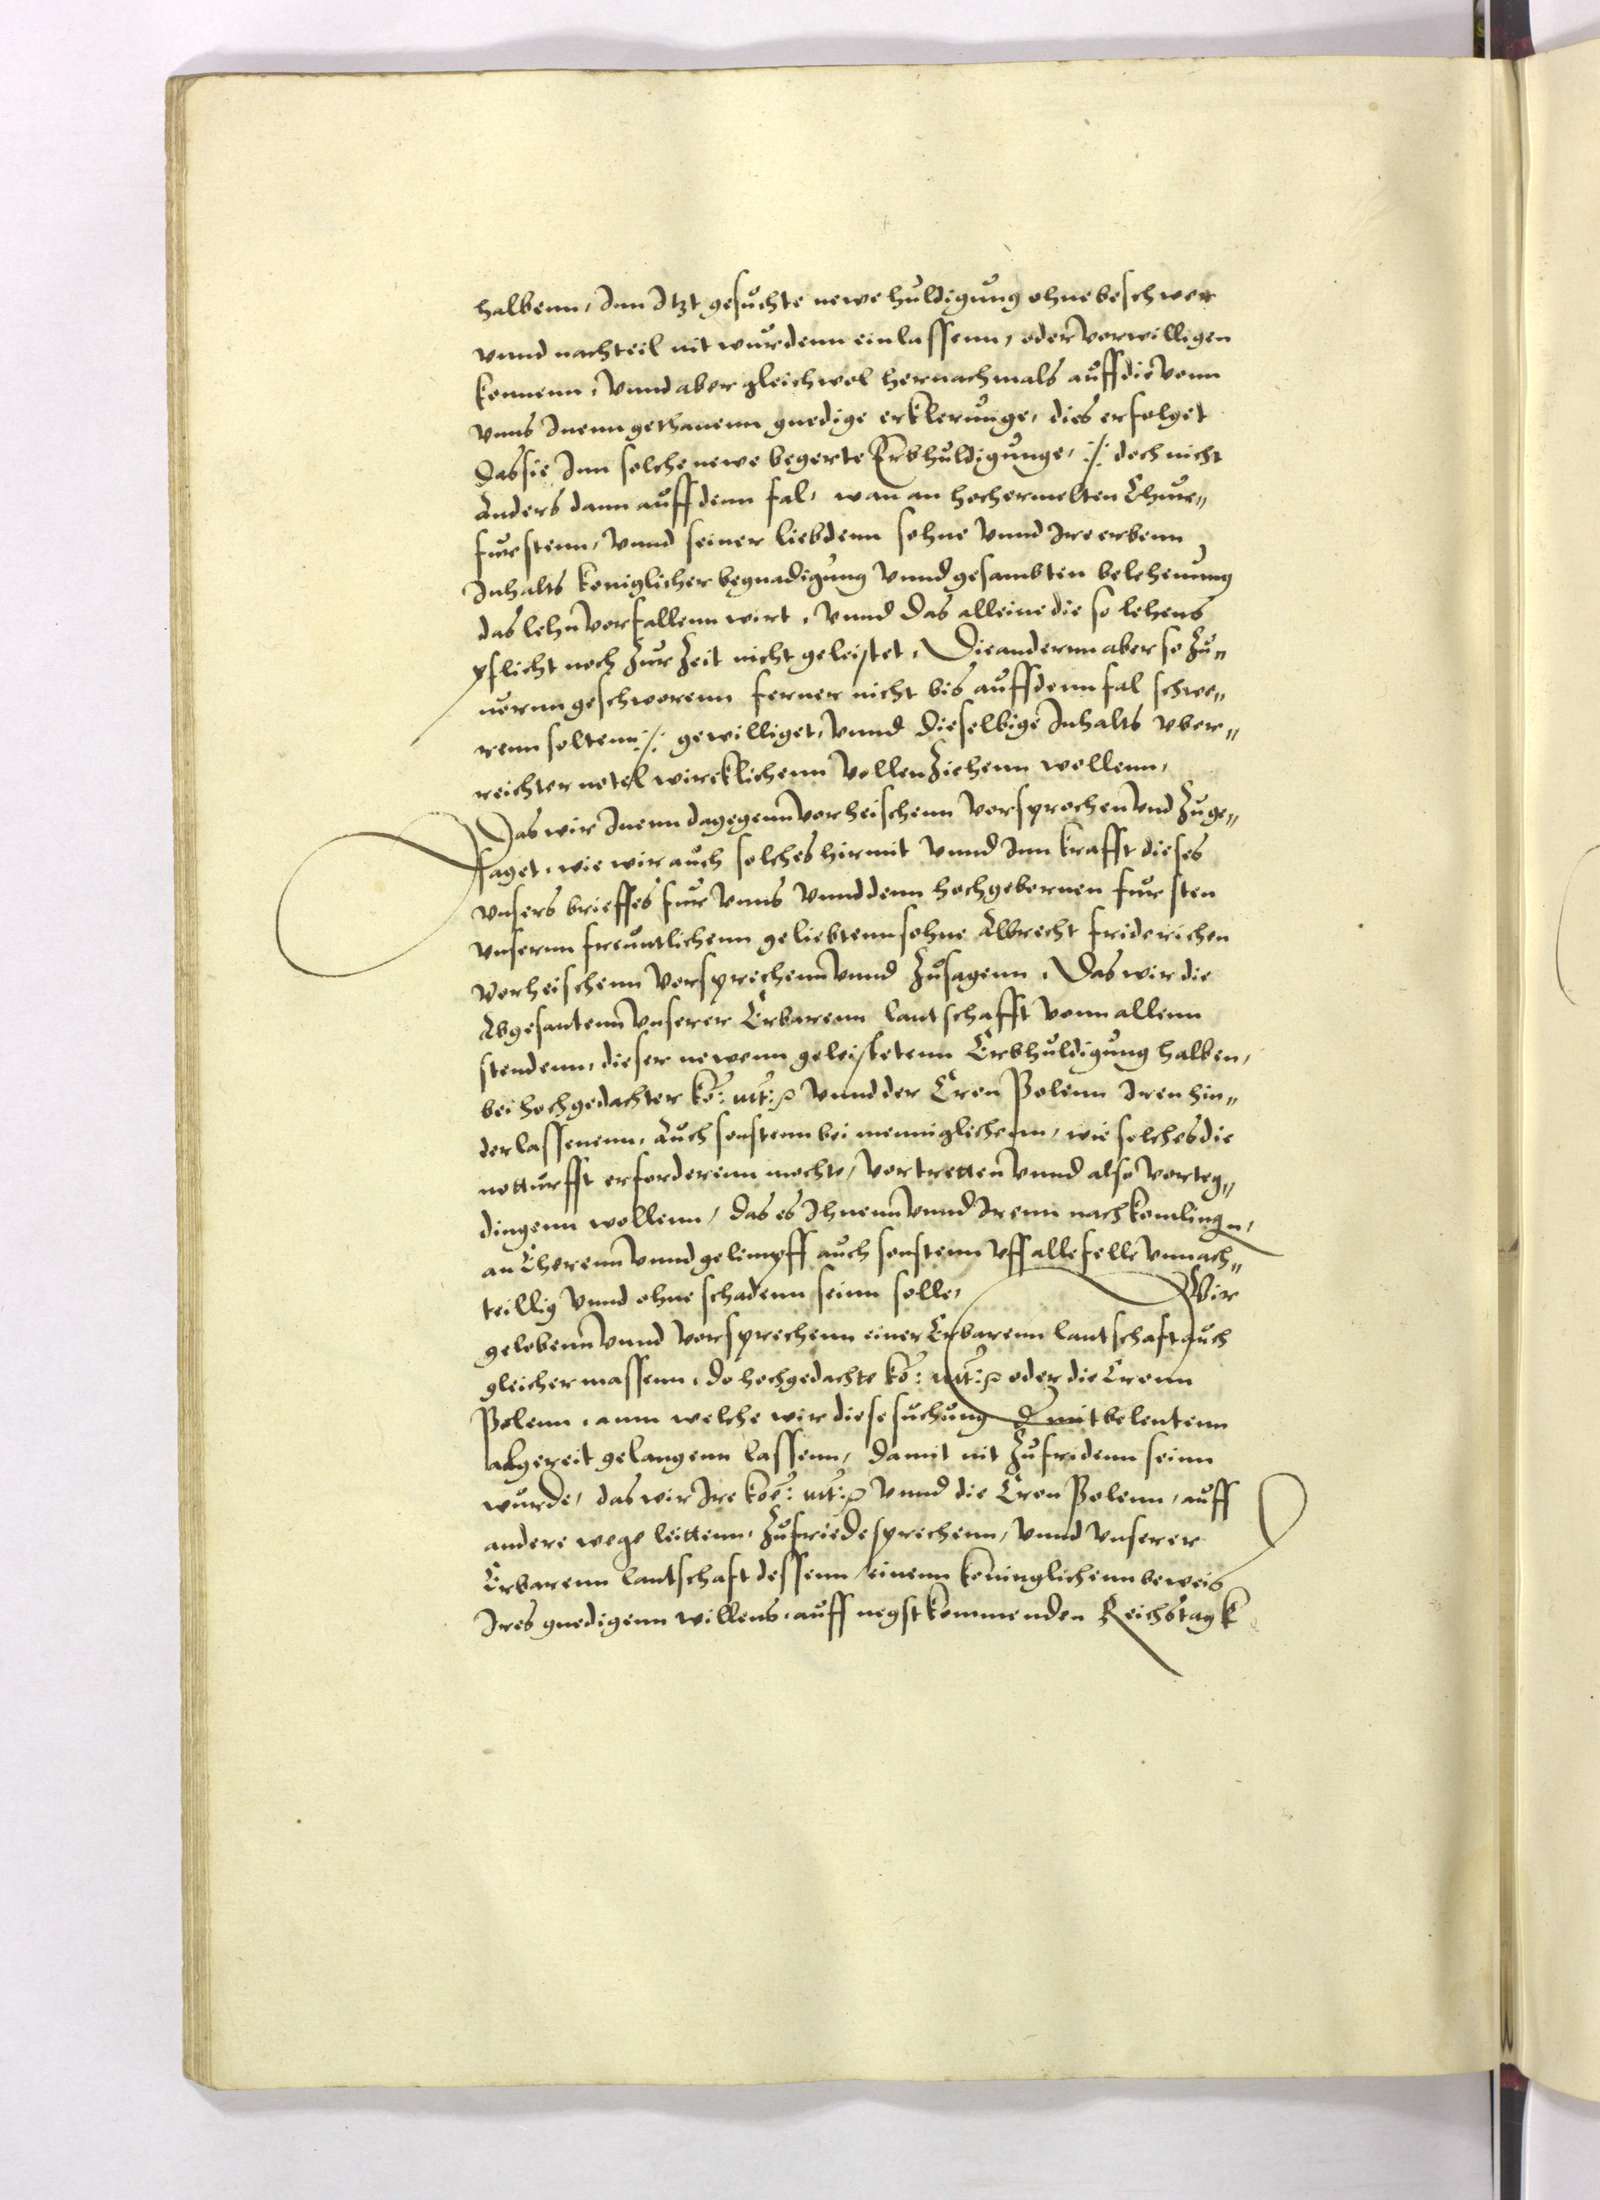 halbenn, Inn Itzt gesuchte newe huldigung ohne beschwer
vnnd nachteil nit wurdenn einlassenn, oder vorwilligen
konnenn, vnnd aber gleichwol hernachmals auff die vonn
vnns Inenn gethanenn gnedige erklerunge, dies erfolget
das sie Inn solche newe begerte Erbhuldigunge, ./. doch nicht
Anders dann auff denn fal, wan an hochermelten Chur„
furstenn, vnnd seiner liebdenn sohne vnnd Ire erbenn
Inhalts koniglicher begnadigung vnnd gesambten belehenung
das lehn vorfallenn wirt, vnnd das alleine die so lehens
pflicht noch zur zeit nicht geleistet, Die andernn aber so zu„
uornn geschworenn ferner nicht bis auff denn fal schwe„
renn soltenn ./. gewilliget, vnnd dieselbige Inhalts vber„
reichter notel wircklichenn vollenziehenn wollenn,
Das wir Inenn dagegenn vorheischenn vorsprochen vnd zuge„
saget, wie wir auch solches hirmit vnnd Inn krafft dieses
vnsers brieffes fur vnns vnnd denn hochgebornen fursten
vnsernn freuntlichenn geliebtenn sohne Albrecht friderichen
vorheischenn vorsprechenn vnnd zusagenn, Das wir die
Abgesantenn vnserer Erbarenn lantschafft vonn allenn
stendenn, dieser newenn geleistetenn Erbhuldigung halben,
bei hochgedachter ko: mt: vnnd der Cron Polenn Iren hin„
derlassenenn, Auch sonstenn bei menniglichenn, wie solches die
notturfft erforderenn mochte, vortretten vnnd also vorteg„
dingenn wollenn, das es Ihnenn vnnd Irenn nachkomlingn,
an Eherenn vnnd gelimpff auch sonstenn vff alle felle vnnach„
teillig vnnd ohne schadenn seinn solle, Wir
gelobenn vnnd vorsprechenn einer Erbarenn lantschaft auch
gleichermassenn, do hochgedachte ko: mt: oder die Cronn
Polenn, ann welche wir diese suchung d mitbelentenn
alhgereit gelangenn lassenn, damit nit zufridenn seinn
wurde, das wir Ire koe: mt: vnnd die Cron Polenn, auff
andere wege leittenn, zufriede sprechenn, vnnd vnserer
Erbarenn lantschaft dessenn einenn koninglichenn beweis
Ires gnedigenn willens, auff negstkommenden Reichstagk